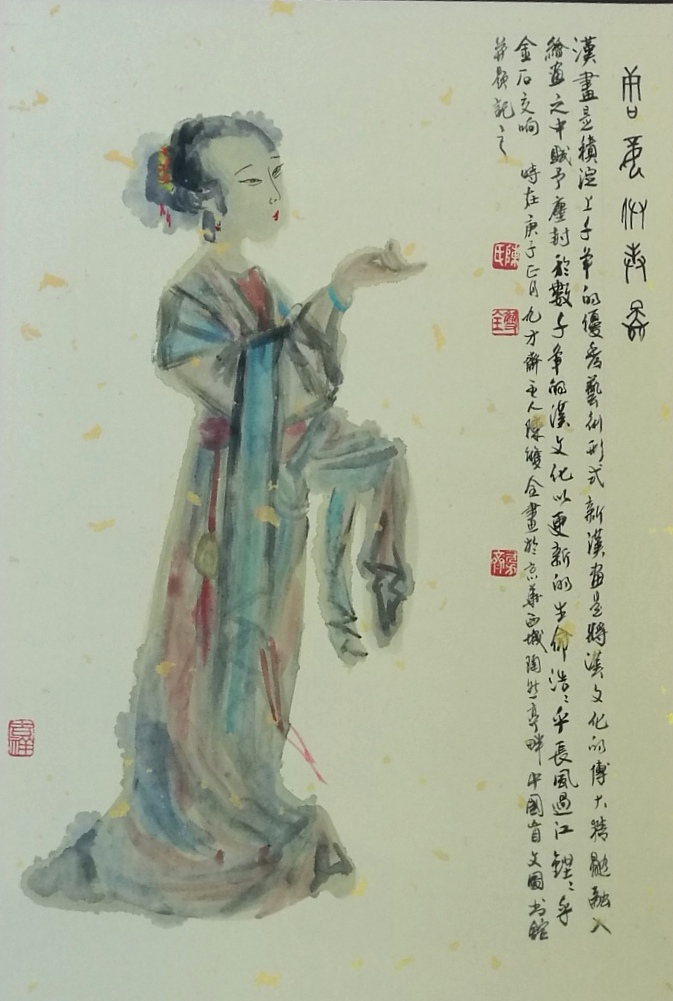 漢畫是積淀上千年的優秀藝術形式新漢畫是將漢文化的博大精髓融入
繪畫之中賦予塵封於數千年的漢文化以更新的生命浩〻乎長風過江鏗〻乎
金石交响 時在庚子正月九齋主人陳雙全畫於京華西城陶然亭畔中國盲文圖书館
并題記之
陳氏
雙全
吉祥